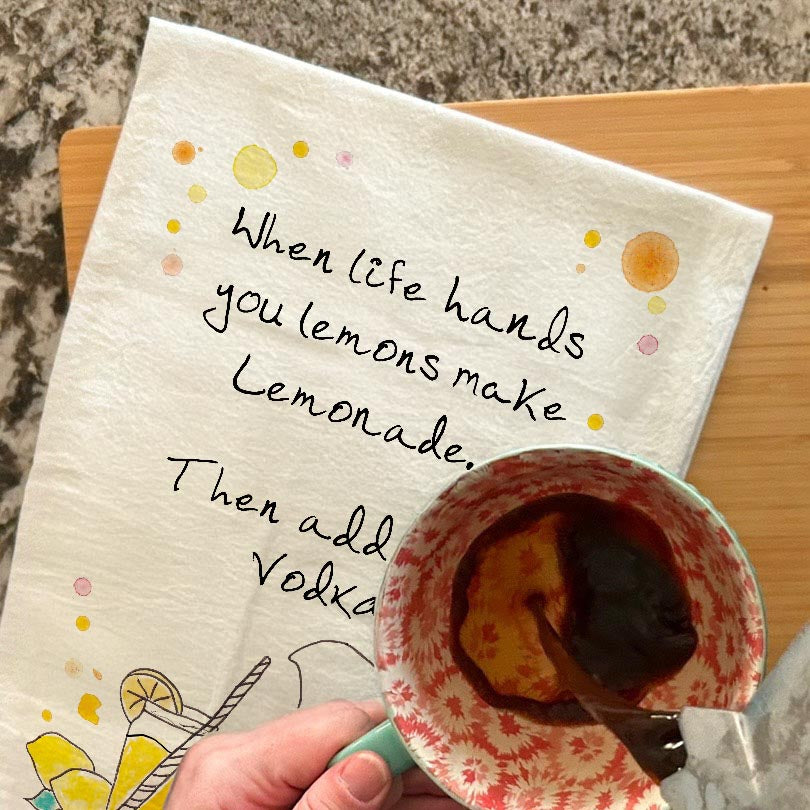 When life hands
you lemons make
Lemonade.
Then add
Vodka